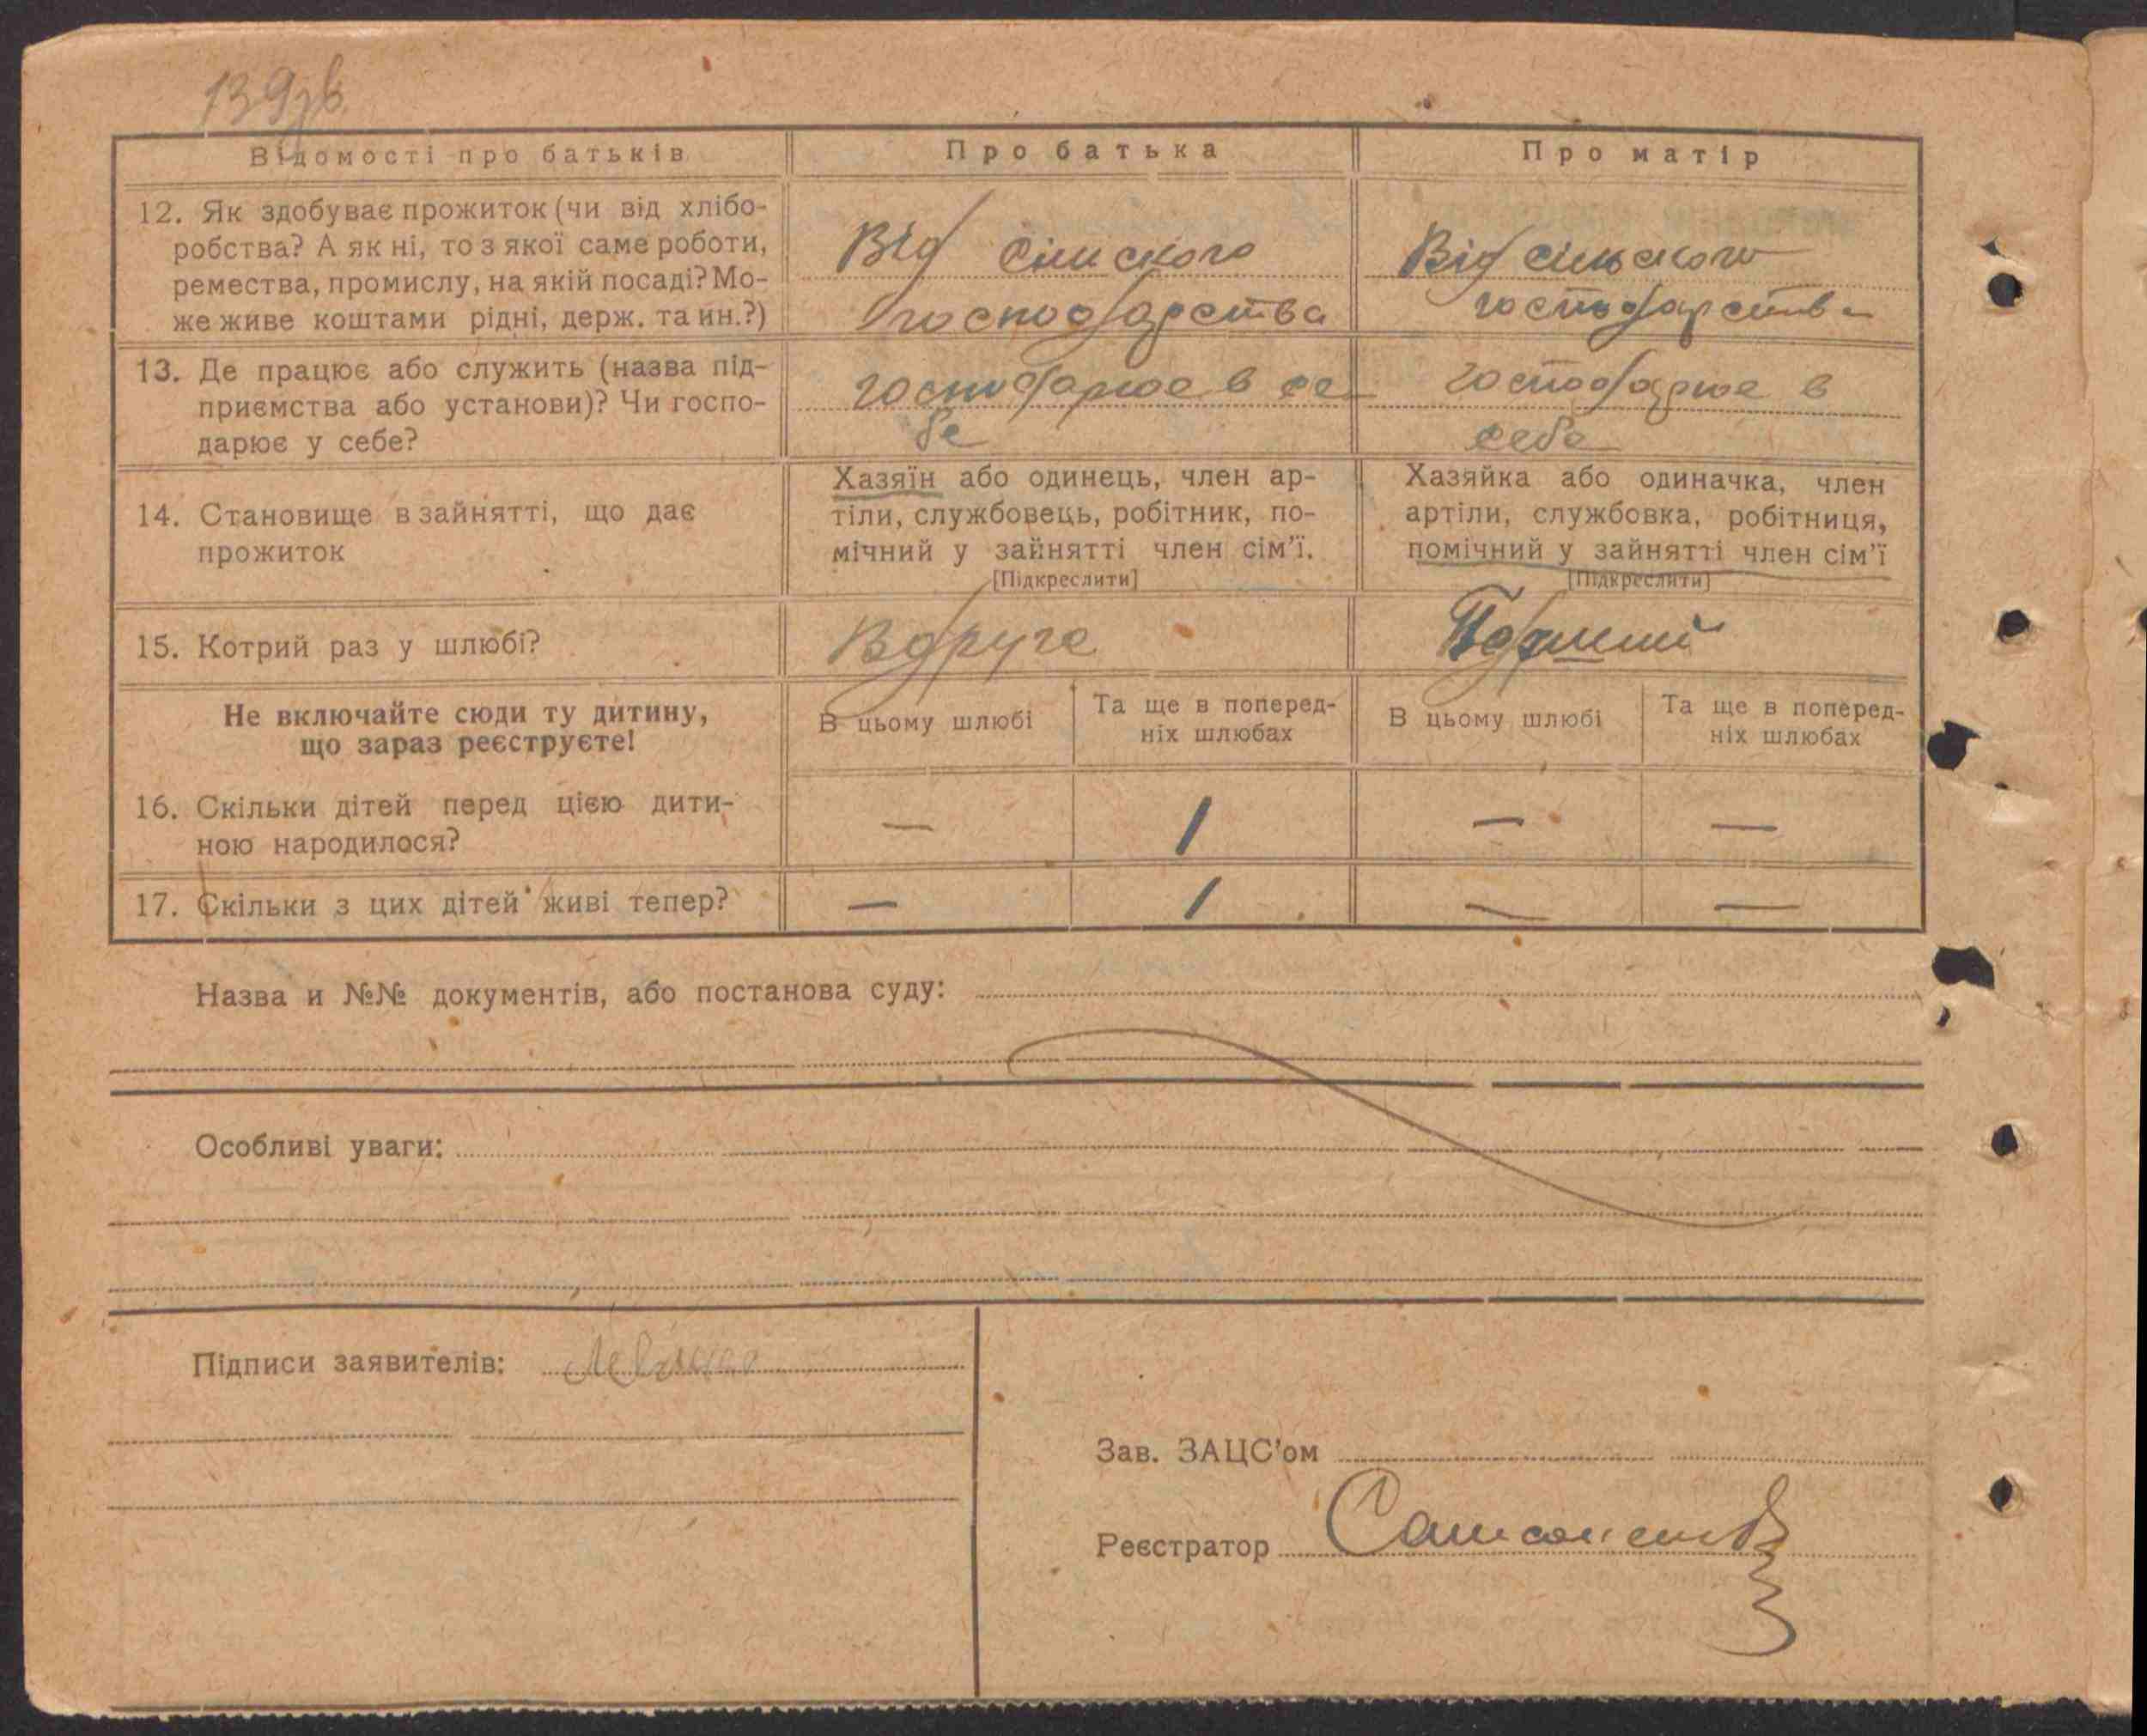 139зв
Відомості про батьків
Про батька
Про матір
12. Як здобуває прожиток (чи від хлібо-
робства? А як ні, то з якої саме роботи,
ремества, промислу, на якій посаді? Мо-
же живе коштами рідні, держ. та ин.?)
Від сільского
господарства
Від сільского
господарства
13. Де працює або служить (назва під-
приємства або установи)? Чи госпо-
дарює у себе?
господарює в се
бе
господарює в
себе
14. Становище в зайнятті, що дає
прожиток
Хазяїн або одинець, член ар-
тіли, службовець, робітник, по-
мічний у зайнятті член сім'ї.
[Підкреслити]
Хазяйка або одиначка, член
артіли, службовка, робітниця,
помічний у зайнятті член сім'ї
[Підкреслити]
15. Котрий раз у шлюбі?
Вдруге
Не включайте сюди ту дитину,
що зараз реєструєте!
В цьому шлюбі
Та ще в поперед-
ніх шлюбах
В цьому шлюбі
Та ще в поперед-
ніх шлюбах
16. Скільки дітей перед цією дити-
ною народилося?
— 1 — —
17. Скільки з цих дітей живі тепер?
— 1 — —
Назва и №№ документів, або постанова суду:
Особливі уваги:
Підписи заявителів:
Зав. ЗАЦС'ом
Реєстратор